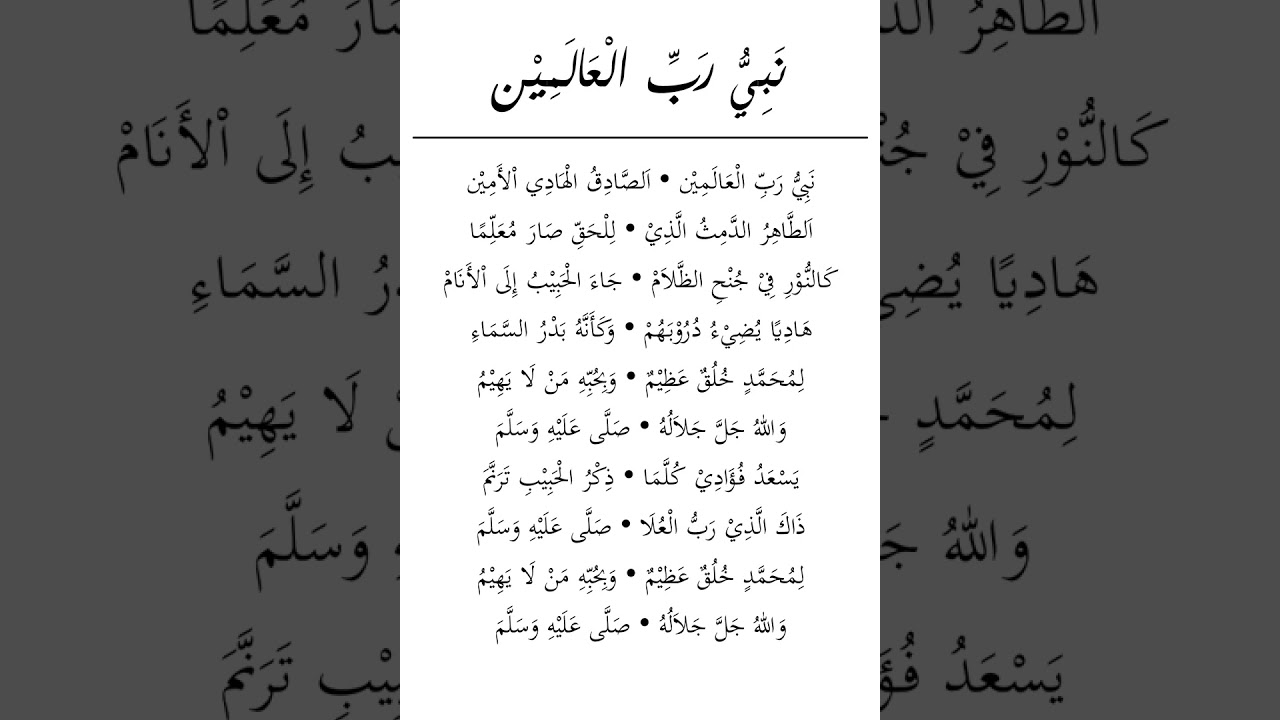 نَبِيُّ رَبِّ الْعَالَمِيْن
نَبِيُّ رَبِّ الْعَالَمِيْن • اَلصَّادِقُ الْهَادِي اْلأَمِيْن
اَلطَّاهِرُ الدَّمِثُ الَّذِيْ • لِلْحَقِّ صَارَ مُعَلِّمًا
كَالنُّوْرِ فِيْ جُنْحِ الظَّلاَمْ • جَاءَ الْحَبِيْبُ إِلَى اْلأَنَامْ
هَادِيًا يُضِيْءُ دُرُوْبَهُمْ • وَكَأَنَّهُ بَدْرُ السَّمَاءِ
لِمُحَمَّدٍ خُلُقٌ عَظِيْمٌ • وَبِحُبِّهِ مَنْ لَا يَهِيْمُ
وَاللهُ جَلَّ جَلاَلُهُ • صَلَّى عَلَيْهِ وَسَلَّمَ
يَسْعَدُ فُؤَادِيْ كُلَّمَا • ذِكْرُ الْحَبِيْبِ تَرَنَّمَ
ذَاكَ الَّذِيْ رَبُّ الْعُلَا • صَلَّى عَلَيْهِ وَسَلَّمَ
لِمُحَمَّدٍ خُلُقٌ عَظِيْمٌ • وَبِحُبِّهِ مَنْ لَا يَهِيْمُ
وَاللهُ جَلَّ جَلاَلُهُ • صَلَّى عَلَيْهِ وَسَلَّمَ